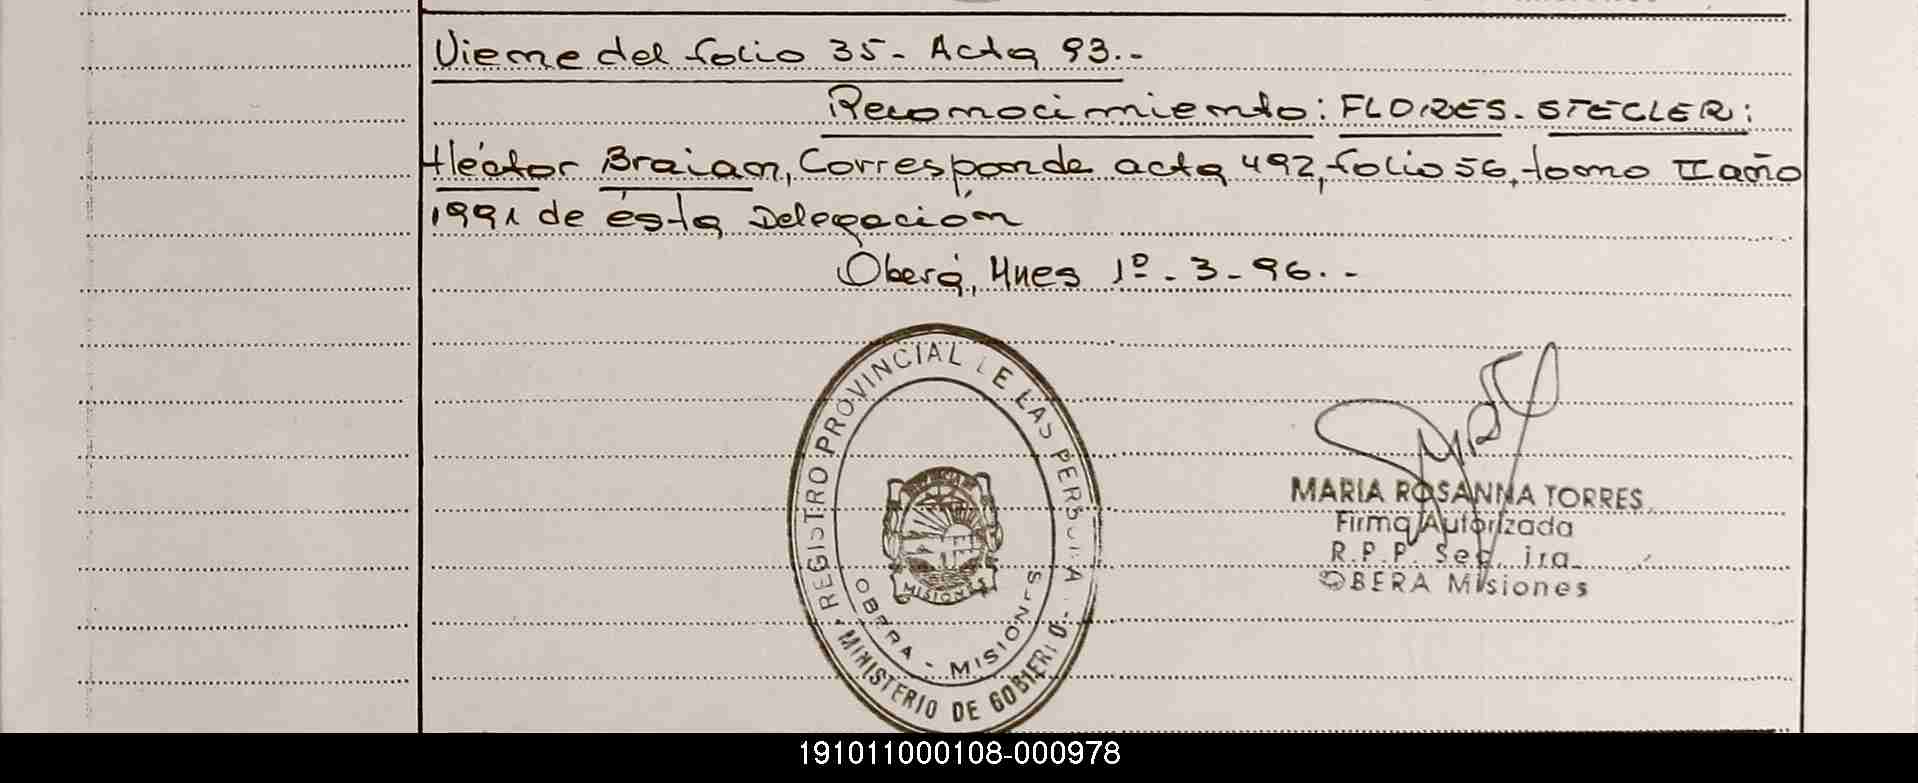 Viene del folio 35- Acta 93.-
Reconocimiento: FLORES-STECLER:
Héctor Braian, Corresponde acta 492, folio 56, tomo II año
1991 de ésta Delegación
Oberá, Mnes 1º-3-96.-
REGISTRO PROVINCIAL DE LAS PERSONAS
PROVINCIA DE
MISIONES
OBERA - MISIONES
MINISTERIO DE GOBIERNO
MARIA ROSANNA TORRES
Firma Autorizada
R.P.P. Sec. 1ra.
OBERA Misiones
191011000108-000978